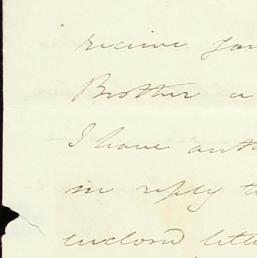 receive
Brother a
I have auth
in reply t
enclosd lette